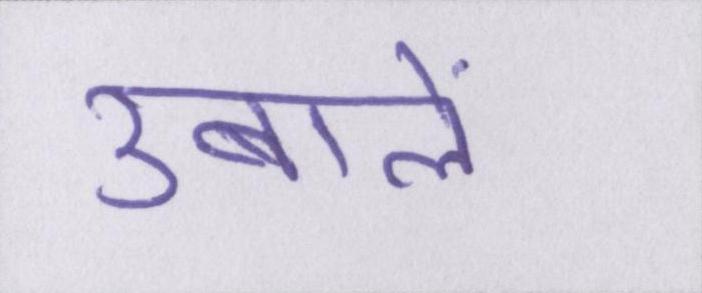 उबालें